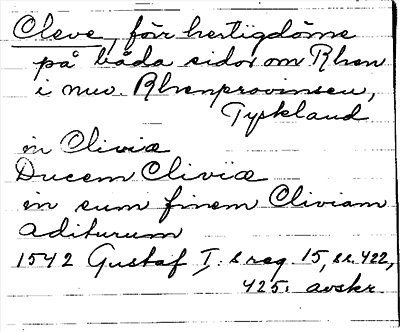 Cleve, förr hertigdöme
på båda sidor om Rhen
i nuv. Rhenprovinsen,
Tyskland
in Cliviæ
Ducem Cliviæ
in eum finem Cliviam
aditurum
1542 Gustaf I: s reg. 15, s. 422,
425. avskr.